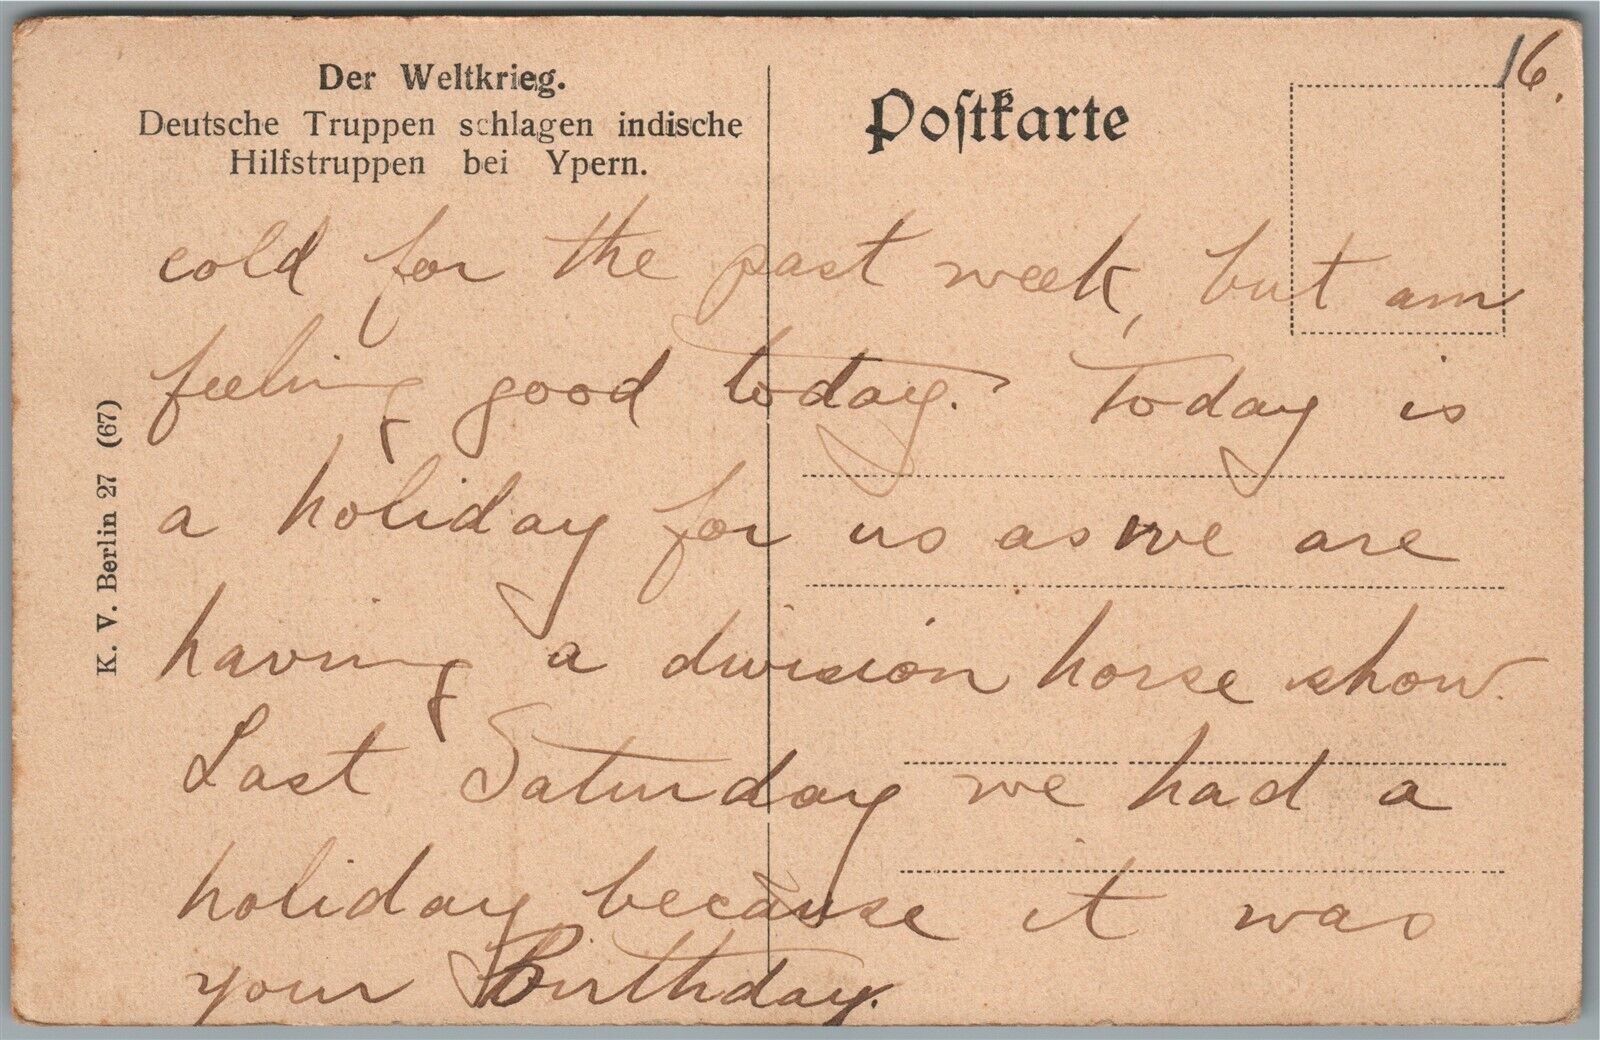 16.
Der Weltkrieg.
Deutsche Truppen schlagen indische
Hilfstruppen bei Ypern.
Poſtkarte
K. V. Berlin 27 (67)
cold for the past week, but am
feeling good today. Today is
a holiday for us as we are
having a division horse show.
Last Saturday we had a
holiday because it was
your Birthday.